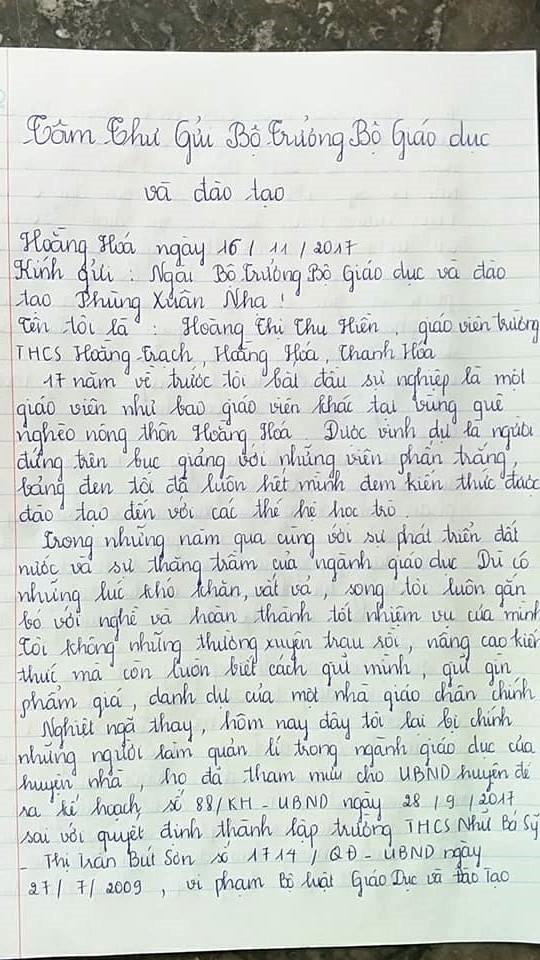 Tâm Thư Gửi Bộ Trưởng Bộ Giáo dục
và đào tạo
Hoằng Hoá ngày 16 / 11 / 2017
Kính gửi : Ngài Bộ Trưởng Bộ Giáo dục và đào
tạo Phùng Xuân Nhạ !
Tên tôi là : Hoàng Thị Thu Hiền , giáo viên trường
THCS Hoằng Trạch , Hoằng Hóa , Thanh Hóa
17 năm về trước tôi bắt đầu sự nghiệp là một
giáo viên như bao giáo viên khác tại vùng quê
nghèo nông thôn Hoằng Hoá . Được vinh dự là người
đứng trên bục giảng với những viên phấn trắng,
bảng đen tôi đã luôn hết mình đem kiến thức được
đào tạo đến với các thế hệ học trò .
Trong những năm qua cùng với sự phát triển đất
nước và sự thăng trầm của ngành giáo dục Dù có
những lúc khó khăn, vất vả , song tôi luôn gắn
bó với nghề và hoàn thành tốt nhiệm vụ của mình
Tôi không những thường xuyên trau rồi , nâng cao kiến
thức mà còn luôn biết cách giữ mình , giữ gìn
phẩm giá , danh dự của một nhà giáo chân chính
Nghiệt ngã thay , hôm nay đây tôi lại bị chính
những người làm quản lí trong ngành giáo dục của
huyện nhà , họ đã tham mưu cho UBND huyện để
ra kế hoạch số 88/KH - UBND ngày 28 / 9 / 2017
sai với quyết định thành lập trường THCS Nhữ Bá Sỹ
- Thị Trấn Bút Sơn số 1714 / QĐ - UBND ngày
27 / 7 / 2009 , vi phạm Bộ luật Giáo Dục và Đào Tạo